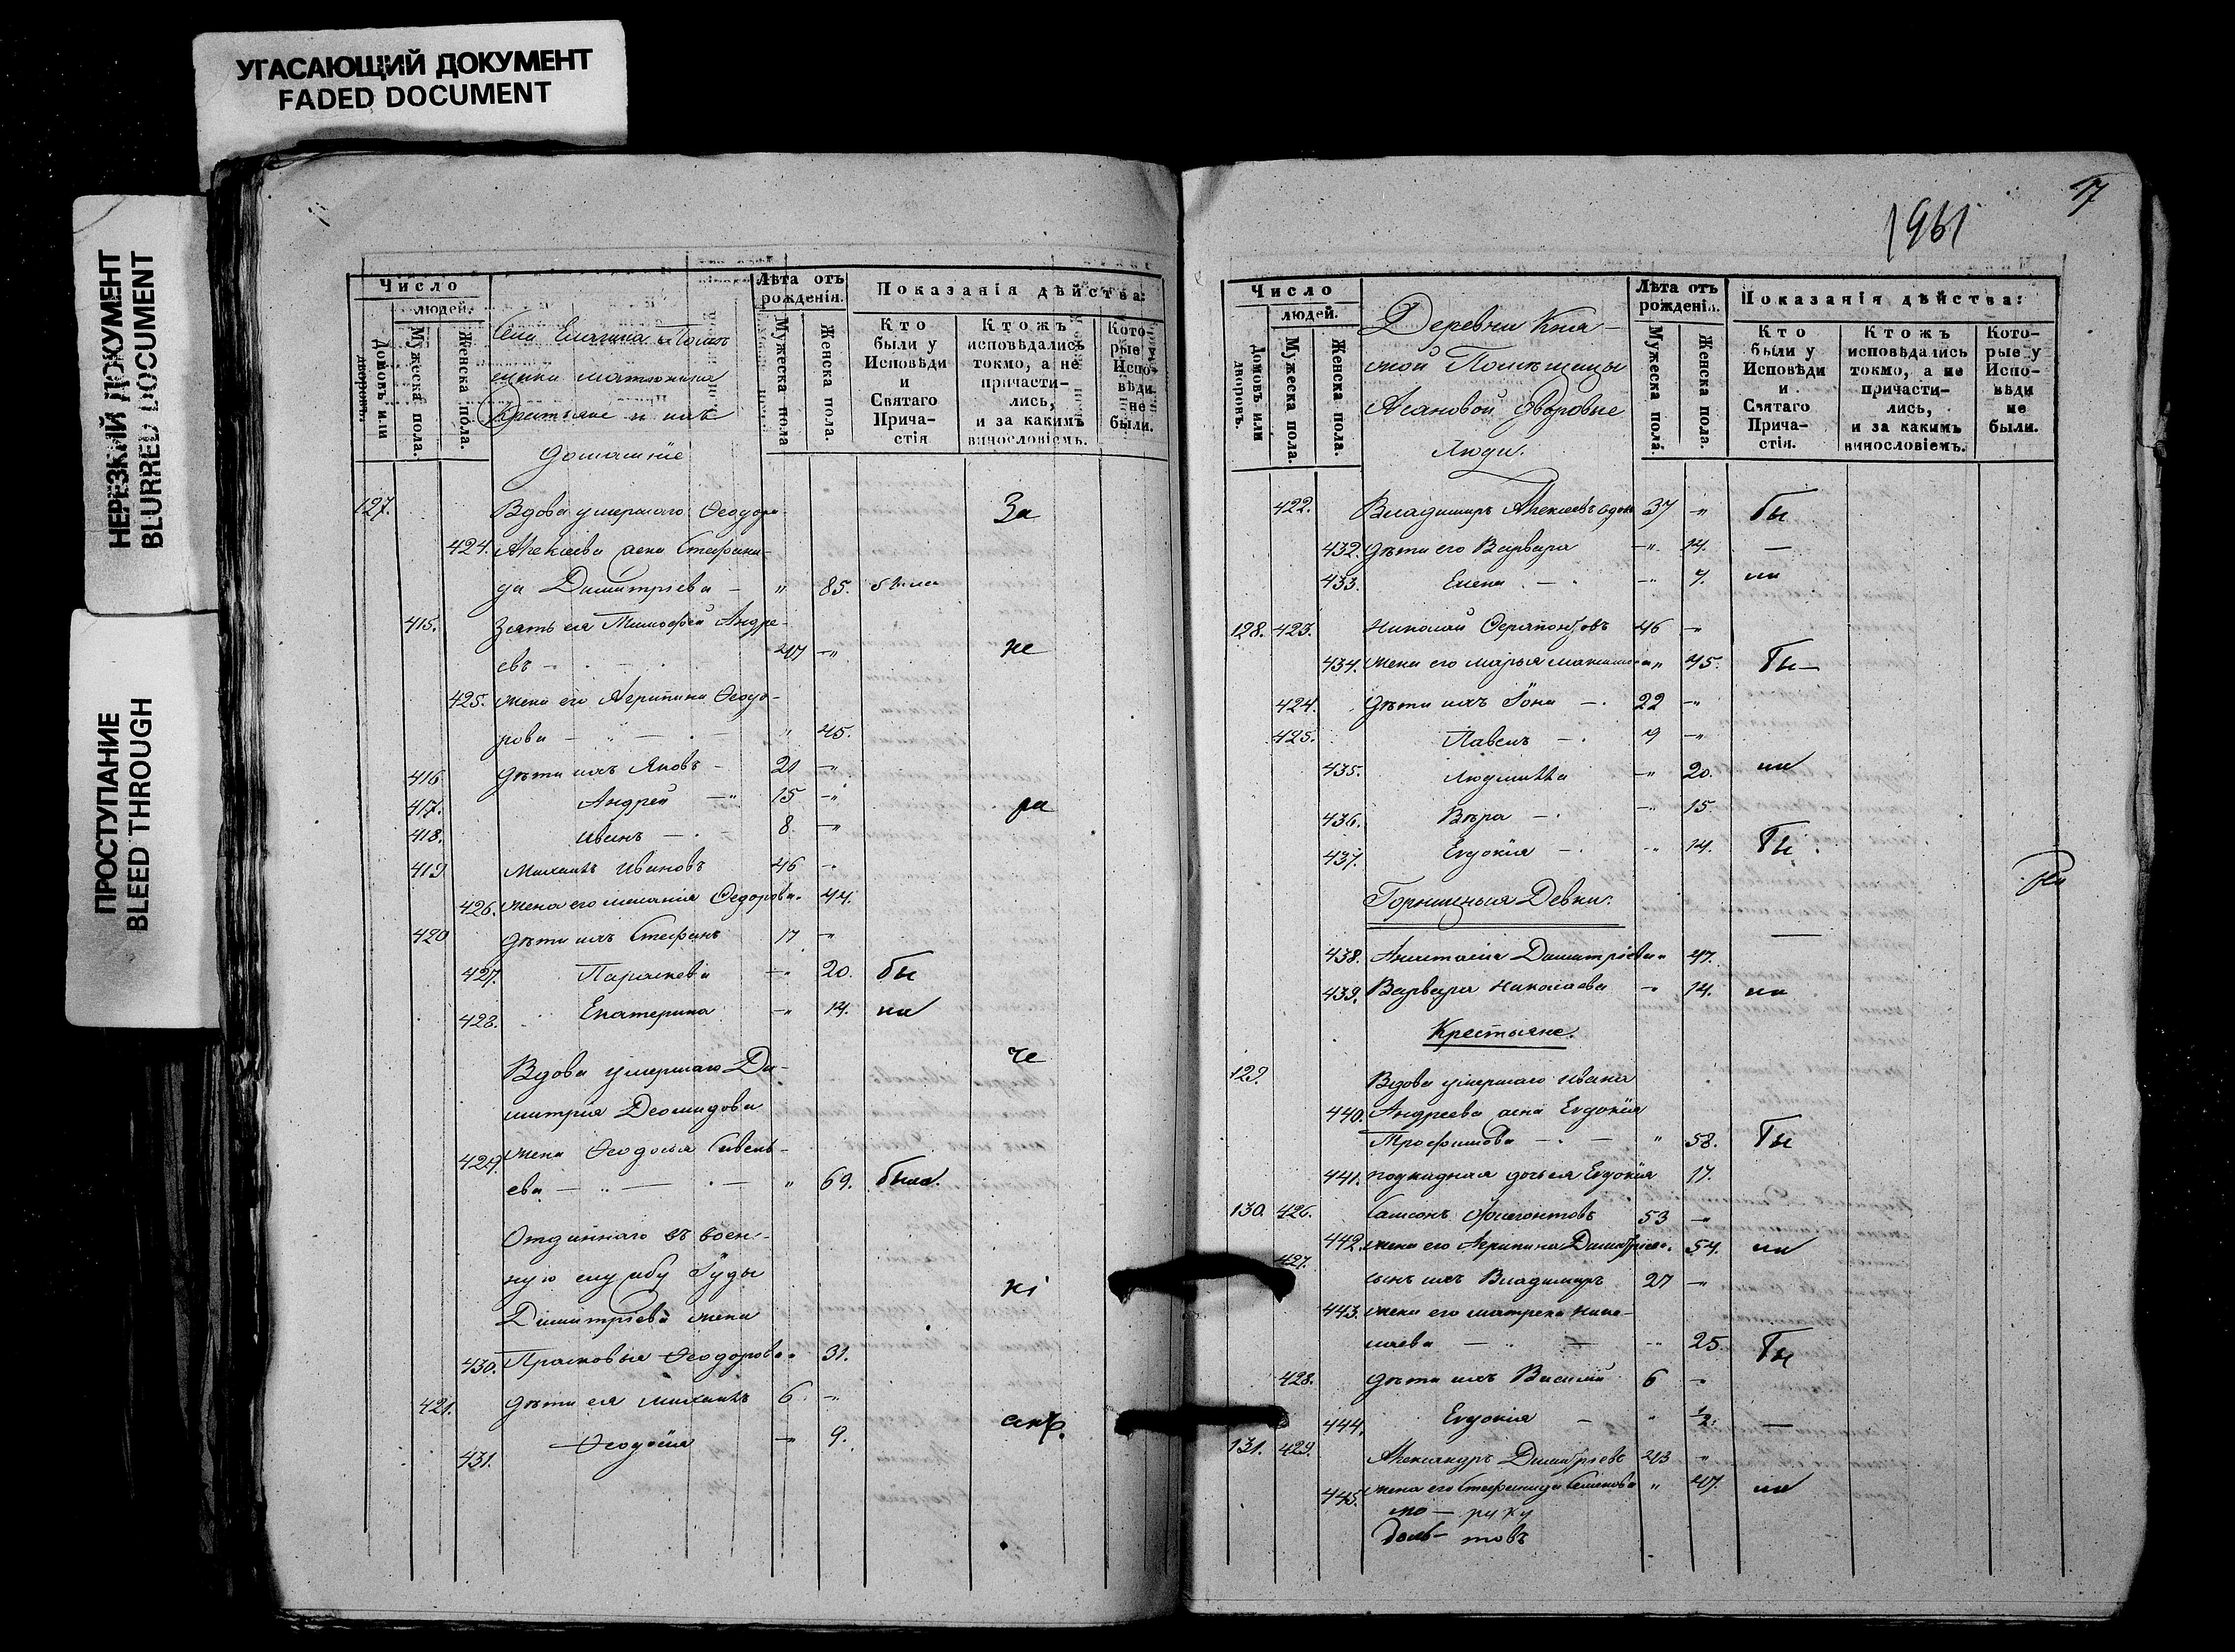 УГАСАЮЩИЙ ДОКУМЕНТ
FADED DOCUMENT
НЕРЕЗКИЙ ДОКУМЕНТ
BLURRED DOCUMENT
ПРОСТУПАНИЕ
BLEED THROUGH
Число
людей.
Домовъ или дворовъ.
Мужеска пола.
Женска пола.
Лѣта отъ рожденія.
Мужеска пола
Женска пола.
Показанія дѣйства:
Кто были у Исповѣди и Святаго Прича- стія
Ктожъ исповѣдались токмо, а не причасти- лись, и за какимъ винословіемъ.
Кото- рые у Испо- вѣди не были.
Крестьяне и ихъ
домашніе
127. Вдова умершаго Ѳеодора
424. Алексѣева жена Стефани-
да Димитріева — " 85. была
За
415. Зять ея Тимофей Андре-
евъ 47 —"
не
425. жена его Агрипина Ѳеодо-
рова — " 45.
416 дѣти ихъ Яковъ — 21 —"
417. Андрей — 15 —"
ра
418. Иванъ — 8 —"
419 Михаилъ Ивановъ 46 —"
426. жена его Меланія Ѳедорова " 44.
420 дѣти ихъ Стефанъ 17 —"
427. Параскева —" 20. бы
428. Екатерина —" 14. ли
че
Вдова умершаго Ди-
митрія Деомидова
429. жена Ѳеодосья Савель-
ева — " — " 69. была.
Отданнаго въ воен-
ную службу Іуды
ні
Димитріева жена
430. Прасковья Ѳеодорова " 31.
421. дѣти ея Михаилъ 6 —"
431. Ѳеодосія —" 9.
17
1961
Число
людей.
Домовъ или дворовъ.
Мужеска пола.
Женска пола.
Деревни
Помѣщицы
Асановой дворовые
люди.
Лѣта отъ рожденія.
Мужеска пола.
Женска пола.
Показанія дѣйства:
Кто были у Исповѣди и Святаго Прича- стія.
Ктожъ исповѣдались токмо, а не причасти- лись, и за какимъ винословіемъ.
Кото- рые у Испо- вѣди не были.
422. Владимиръ Алексѣевъ вдов 37 " бы
432. дѣти его Варвара —" 14. —
433. Елена — —" 7. ли
128. 423. Николай Ферапонтовъ 46 —"
434. жена его Марья Максимова " 45. бы—
424. дѣти ихъ Іона — 22 —"
425. Павелъ — 9 —"
435. Людмилла —" 20. ли
436. Вѣра — —" 15.
437. Евдокія — —" 14. бы
Горничныя Девки.
438. Анастасія Димитріева " 47.
439. Варвара Николаева —" 14. ли
Крестьяне.
129. Вдова умершаго Ивана
440. Андреева жена Евдокія
Трофимова — " 58. бы
441. подкидная дочь ея Евдокія 17.
130. 426. Самсонъ Флегонтовъ 53 —"
442. жена его Агрипина Димитріева " 54. ли
427. сынъ ихъ Владимиръ 27 —"
443. жена его Матрена Нико-
лаева — " 25. бы
428. дѣти ихъ Василій 6 —"
444. Евдокія — " 1/2. —
131. 429. Александръ Димитріевъ 43 "
445. жена его Стефанида Семенова " 47. ли